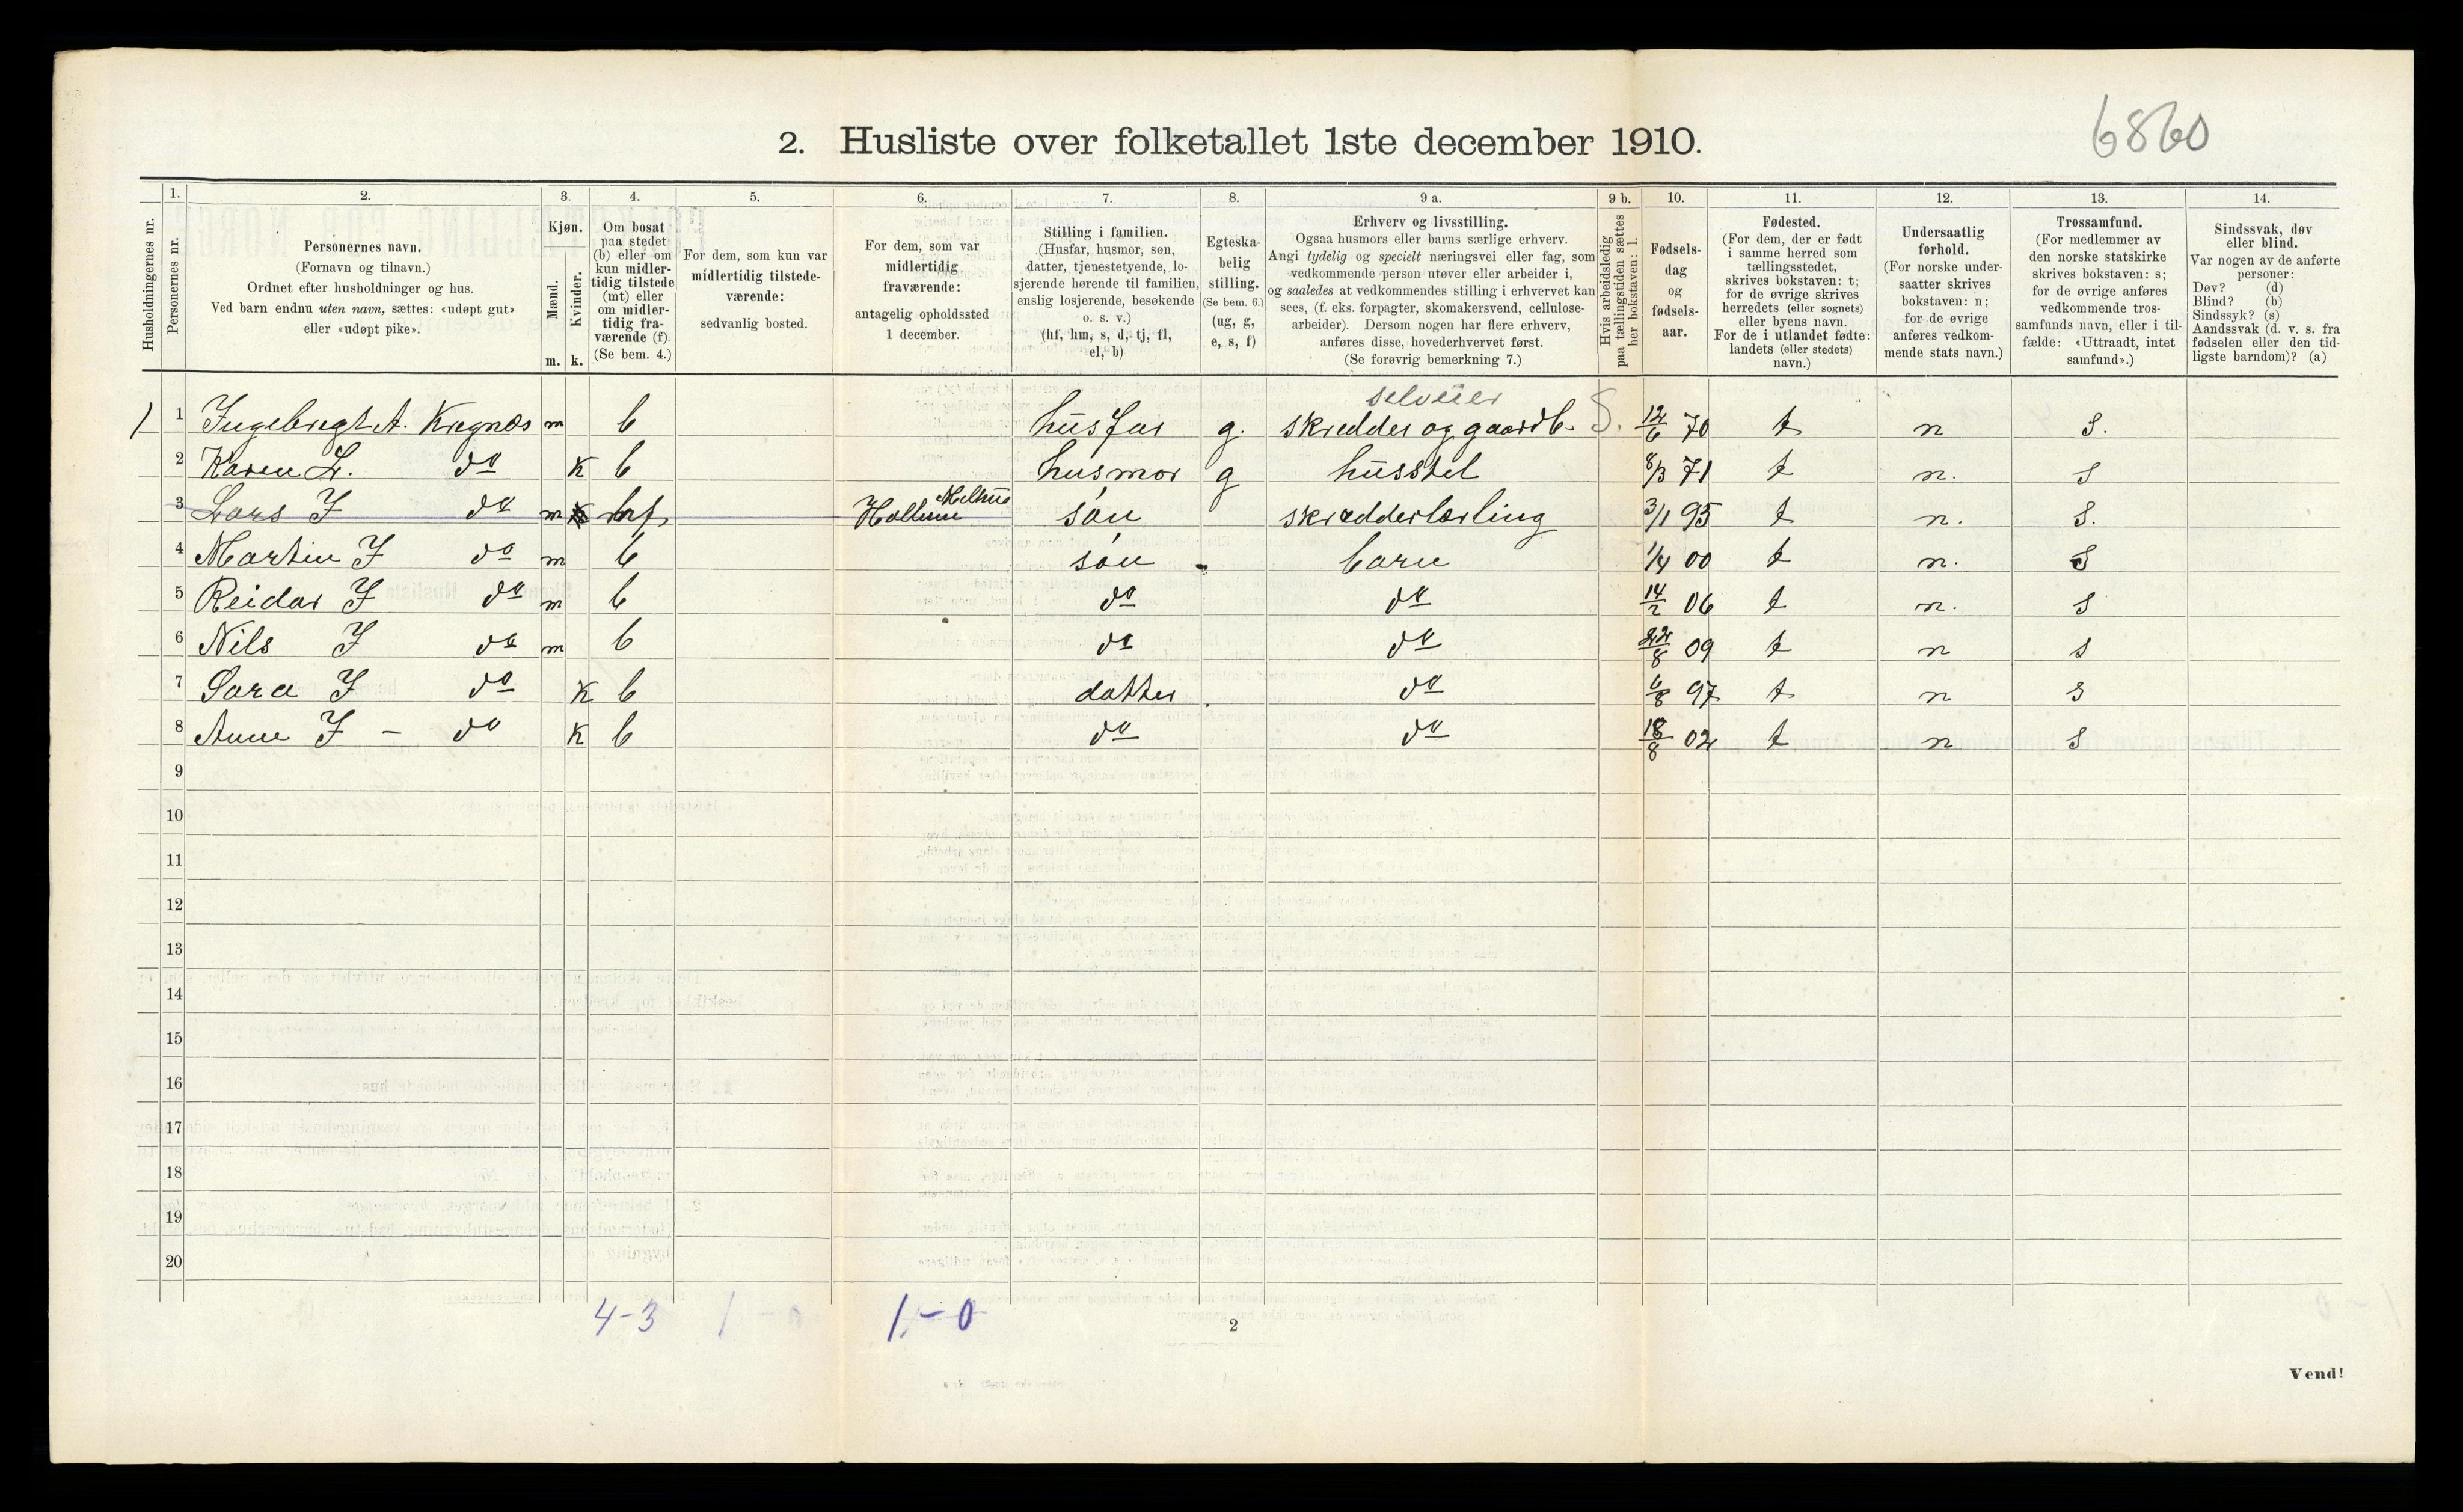 6860
2. Husliste over folketallet 1ste december 1910.
Husholdningernes nr.
1.
Personernes nr.
2.
Personernes navn.
(Fornavn og tilnavn.)
Ordnet efter husholdninger og hus.
Ved barn endnu uten navn, sættes: «udøpt gut»
eller «udøpt pike».
3.
Kjøn.
Mænd.
Kvinder.
m. k.
4.
Om bosat
paa stedet
(b) eller om
kun midler-
tidig tilstede
(mt) eller
om midler-
tidig fra-
værende (f).
(Se bem. 4.)
5.
For dem, som kun var
midlertidig tilstede-
værende:
sedvanlig bosted.
6.
For dem, som var
midlertidig
fraværende:
antagelig opholdssted
1 december.
7.
Stilling i familien.
(Husfar, husmor, søn,
datter, tjenestetyende, lo-
sjerende hørende til familien,
enslig losjerende, besøkende
o. s. v.)
(hf, hm, s, d, tj, fl,
el, b)
8.
Egteska-
belig
stilling.
(Se bem. 6.)
(ug, g,
e, s, f)
9 a.
Erhverv og livsstilling.
Ogsaa husmors eller barns særlige erhverv.
Angi tydelig og specielt næringsvei eller fag, som
vedkommende person utøver eller arbeider i,
og saaledes at vedkommendes stilling i erhvervet kan
sees, (f. eks. forpagter, skomakersvend, cellulose-
arbeider). Dersom nogen har flere erhverv,
anføres disse, hovederhvervet først.
(Se forøvrig bemerkning 7.)
9 b.
Hvis arbeidsledig
paa tællingstiden sættes
her bokstaven: l.
10.
Fødsels-
dag
og
fødsels-
aar.
11.
Fødested.
(For dem, der er født
i samme herred som
tællingsstedet,
skrives bokstaven: t;
for de øvrige skrives
herredets (eller sognets)
eller byens navn.
For de i utlandet fødte:
landets (eller stedets)
navn.)
12.
Undersaatlig
forhold.
(For norske under-
saatter skrives
bokstaven: n;
for de øvrige
anføres vedkom-
mende stats navn.)
13.
Trossamfund.
(For medlemmer av
den norske statskirke
skrives bokstaven: s;
for de øvrige anføres
vedkommende tros-
samfunds navn, eller i til-
fælde: «Uttraadt, intet
samfund».)
14.
Sindssvak, døv
eller blind.
Var nogen av de anførte
personer:
Døv? (d)
Blind? (b)
Sindssyk? (s)
Aandssvak (d. v. s. fra
fødselen eller den tid-
ligste barndom)? (a)
selveier
1) 1 Ingebrigt A. Kregnæs m b husfar g. skredder og gaardb. S. 12/6 70 t n s.
2 Karen L. do k b husmor g husstel 8/3 71 t n. s
Melhus
3 Lars I do m f. søn skrædderlærling 3/1 95 t n. s.
4 Martin I do m b søn barn 1/4 00 t n. s
5 Reidar I do m b do do 14/2 06 t n. s
6 Nils I do m b do do 22/8 09 t n s
7 Sara I do k b datter do 6/8 97 t n s
8 Anne I - do k b do do 18/8 02 t n s
9
10
11
12
13
14
15
16
17
18
19
20
4-3 1-0 1-0
2
Vend!